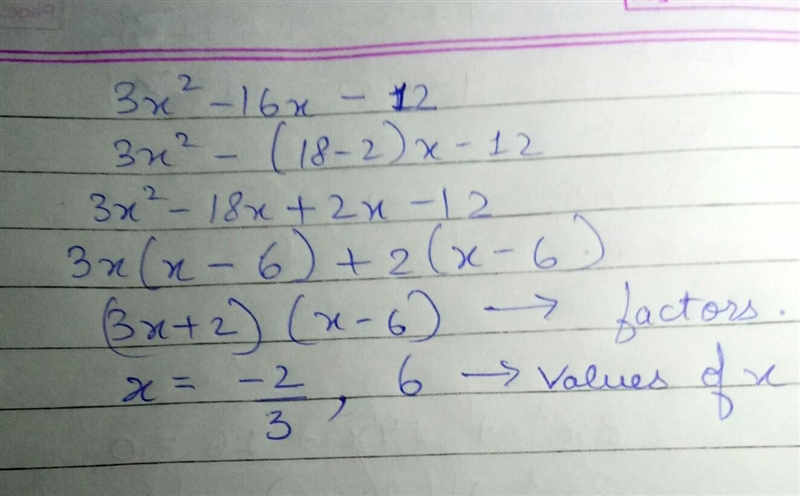 3x² - 16x - 12
3x² - (18-2)x - 12
3x² - 18x + 2x - 12
3x(x - 6) + 2(x - 6)
(3x+2) (x-6) → factors.
x = -2/3, 6 → values of x